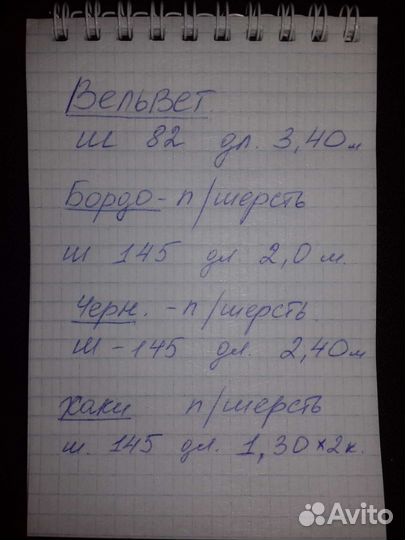 Вельвет
ш 82 дл. 3,40м
Бордо - п/шерсть
ш 145 дл 2,0 м.
Черн. - п/шерсть.
ш - 145 дл. 2,40м
Хаки п/шерсть
ш. 145 дл. 1,30 × 2к.
Avito